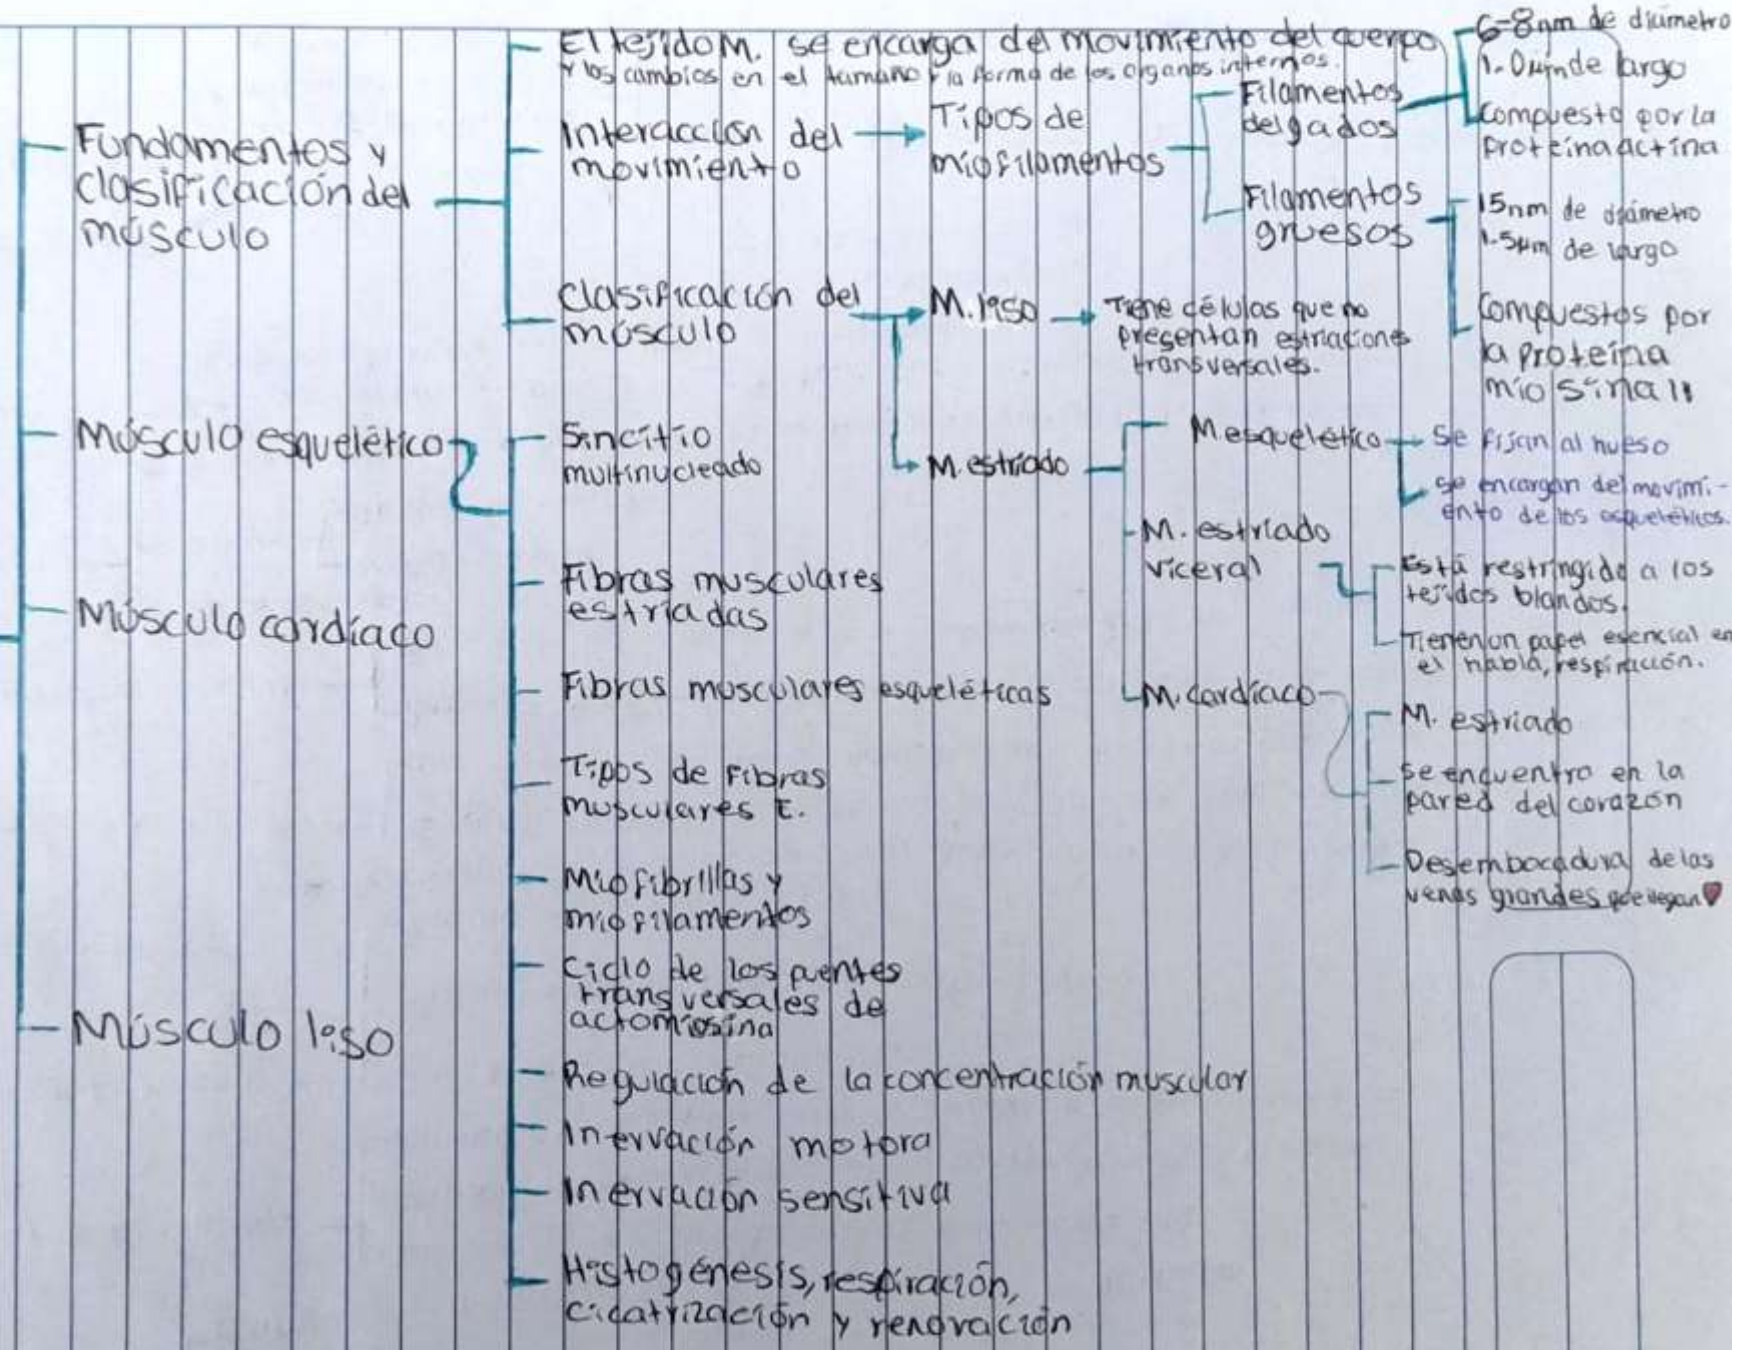 Fundamentos y
clasificación del
músculo
El tejido M. se encarga del movimiento del cuerpo
y los cambios en el tamaño y la forma de los organos internos.
Interacción del
movimiento
Tipos de
miofilamentos
Filamentos
delgados
6-8nm de diámetro
1.0µm de largo
Compuesto por la
proteína actina
Filamentos
gruesos
15nm de diámetro
1.5µm de largo
Compuestos por
la proteína
miosina II
Clasificación del
músculo
M. liso
Tiene células que no
presentan estriaciones
transversales.
M. estriado
M. esquelético
Se fijan al hueso
se encargan del movimi-
ento de los esqueléticos.
M. estriado
viceral
Está restringido a los
tejidos blandos.
Tienen un papel esencial en
el habla, respiración.
M. cardíaco
M. estriado
se encuentra en la
pared del corazón
Desembocadura de las
venas grandes que llegan
Músculo esquelético
Sincitio
multinucleado
Fibras musculares
estriadas
Fibras musculares esqueléticas
Tipos de fibras
musculares E.
Miofibrillas y
miofilamentos
Ciclo de los puentes
transversales de
actomiosina
Regulación de la concentración muscular
Inervación motora
Inervación sensitiva
Histogénesis, respiración,
cicatrización y renovación
Músculo cardíaco
Músculo liso